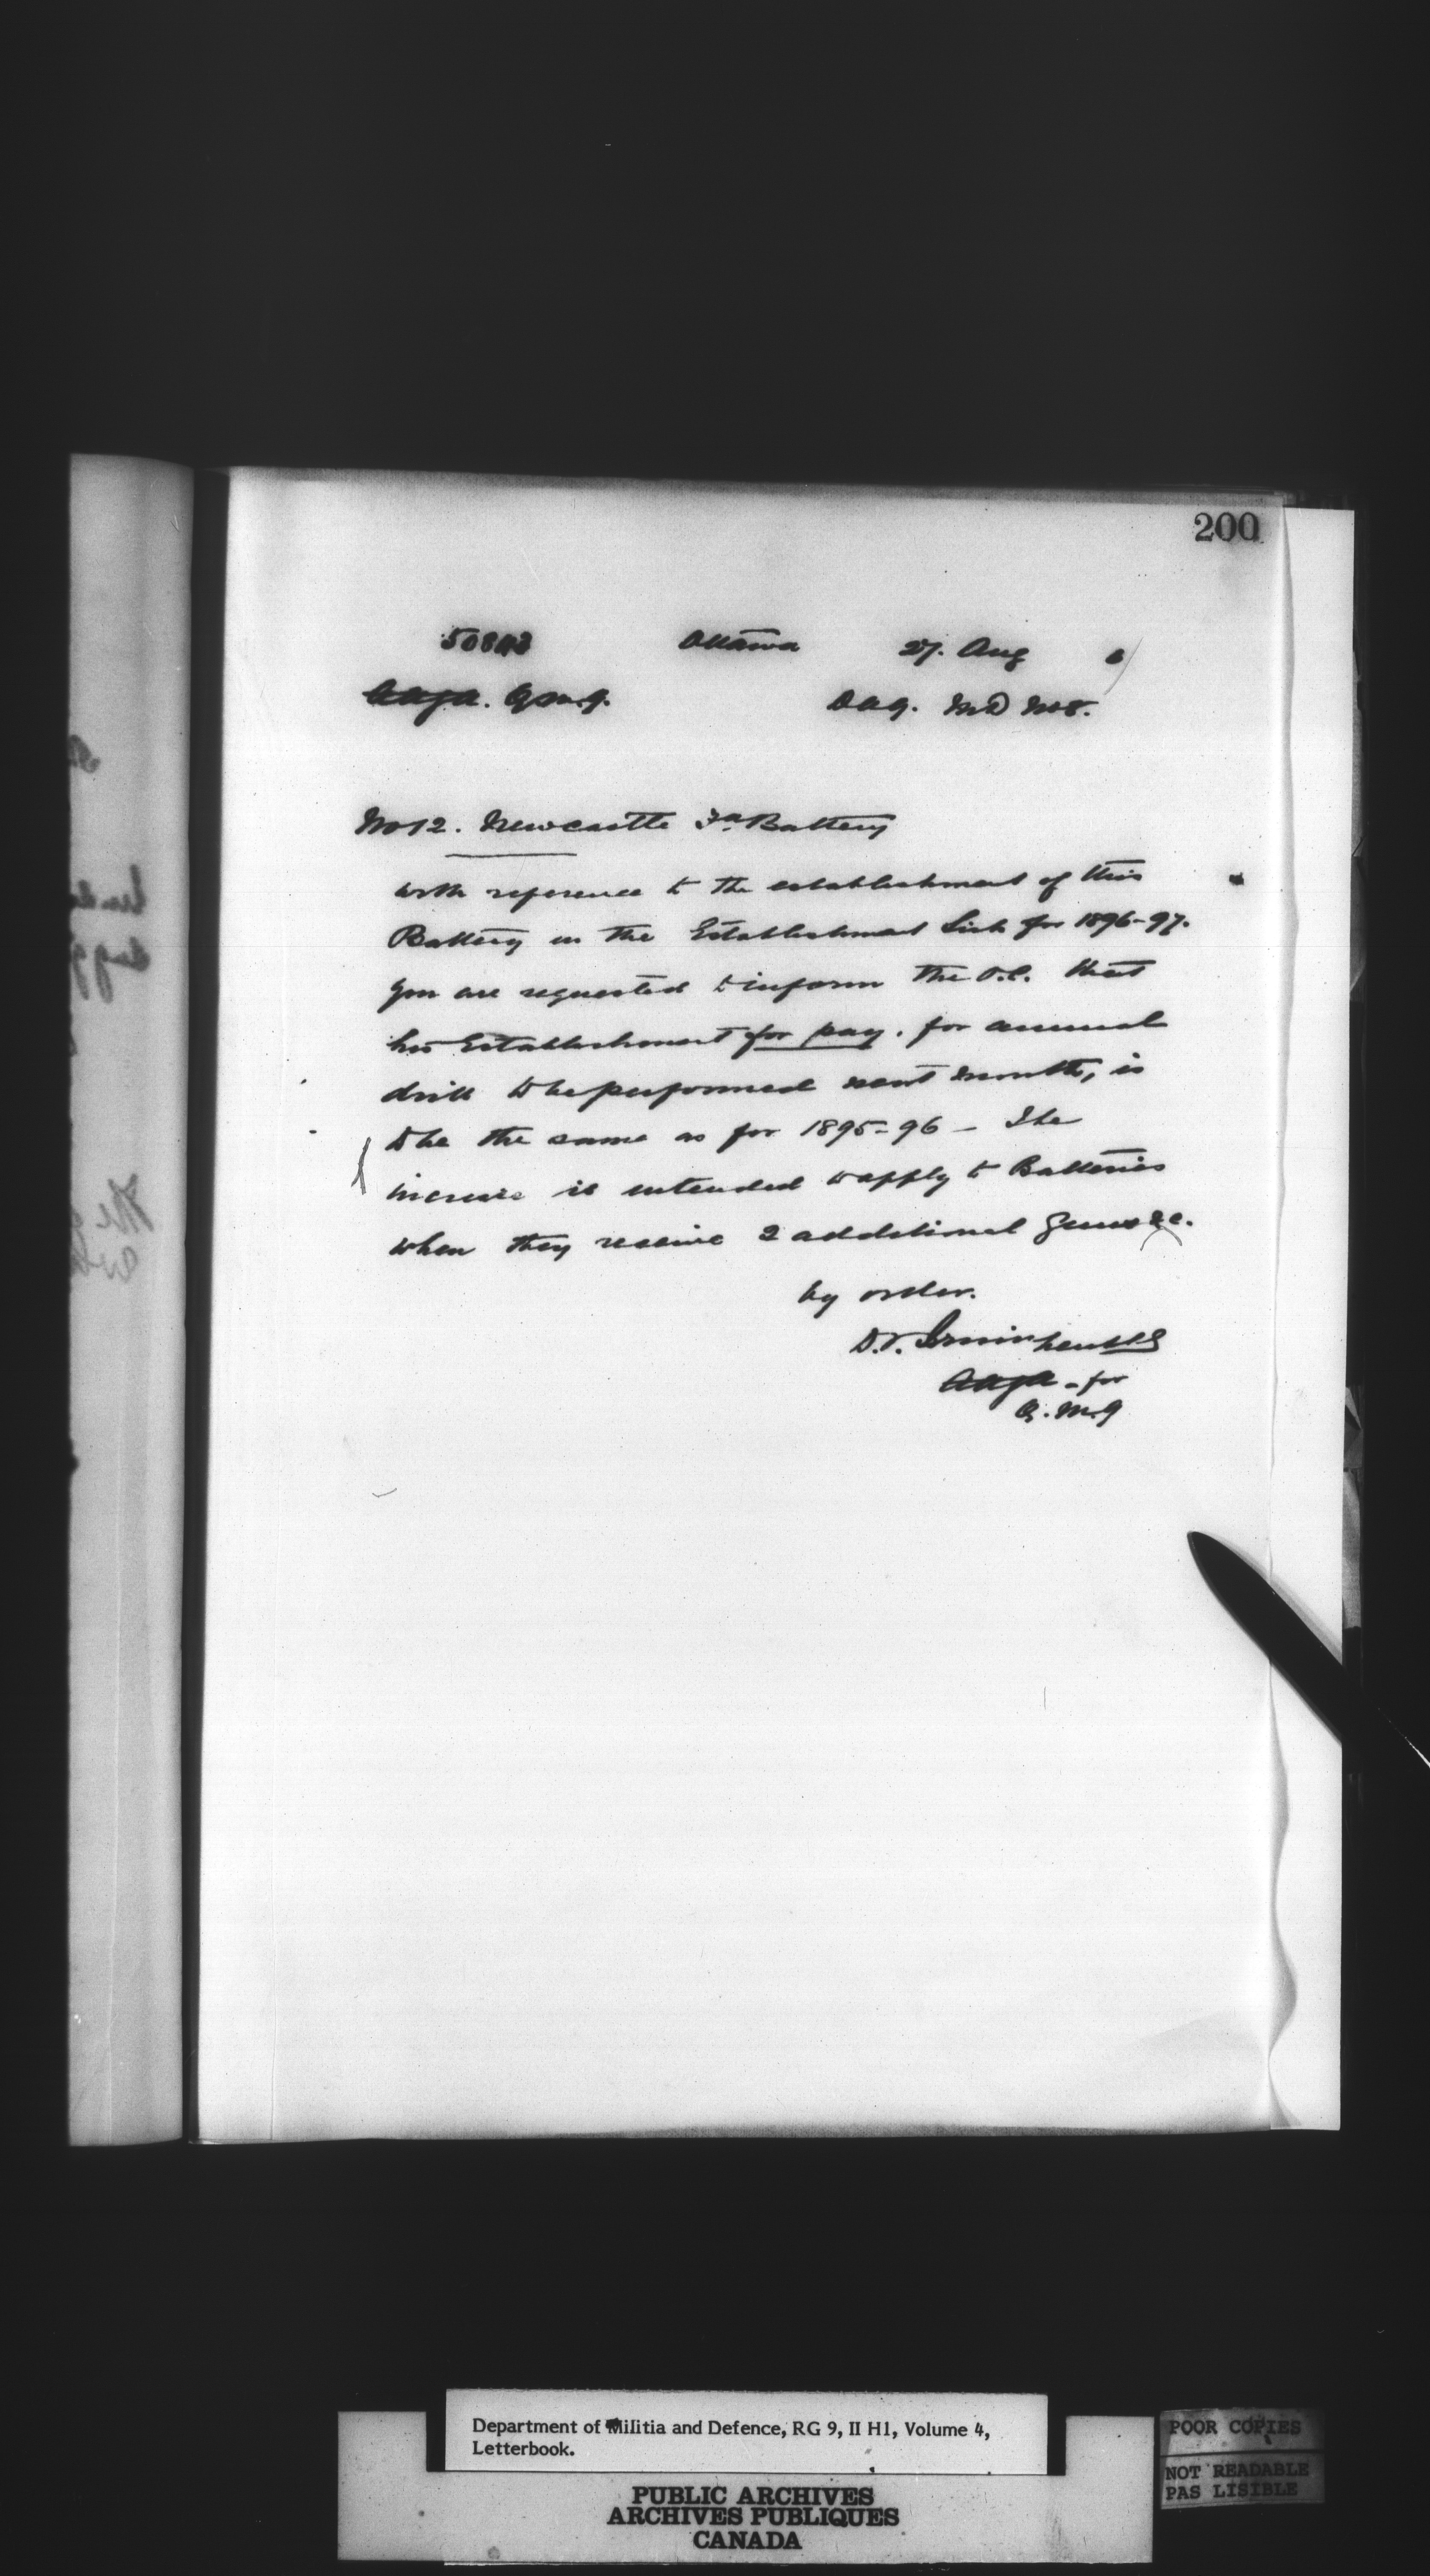 200
Ottawa 27. Aug 6
A.A.G.A. Q.M.G. D A G. M D No 8.
No 12. Newcastle Fd Battery
With reference to the establishment of this
Battery in the Establishment List for 1896-97.
you are requested to inform the O.C. that
his Establishment for pay. for annual
drill to be performed next month, is
to be the same as for 1895-96 - The
increase is intended to apply to Batteries
when they receive 2 additional Guns &c.
by order.
D.T. Irwin Lt Col
A.A.G.A - for
Q.M.G
Department of Militia and Defence, RG 9, II H1, Volume 4,
Letterbook.
PUBLIC ARCHIVES
ARCHIVES PUBLIQUES
CANADA
POOR COPIES
NOT READABLE
PAS LISIBLE